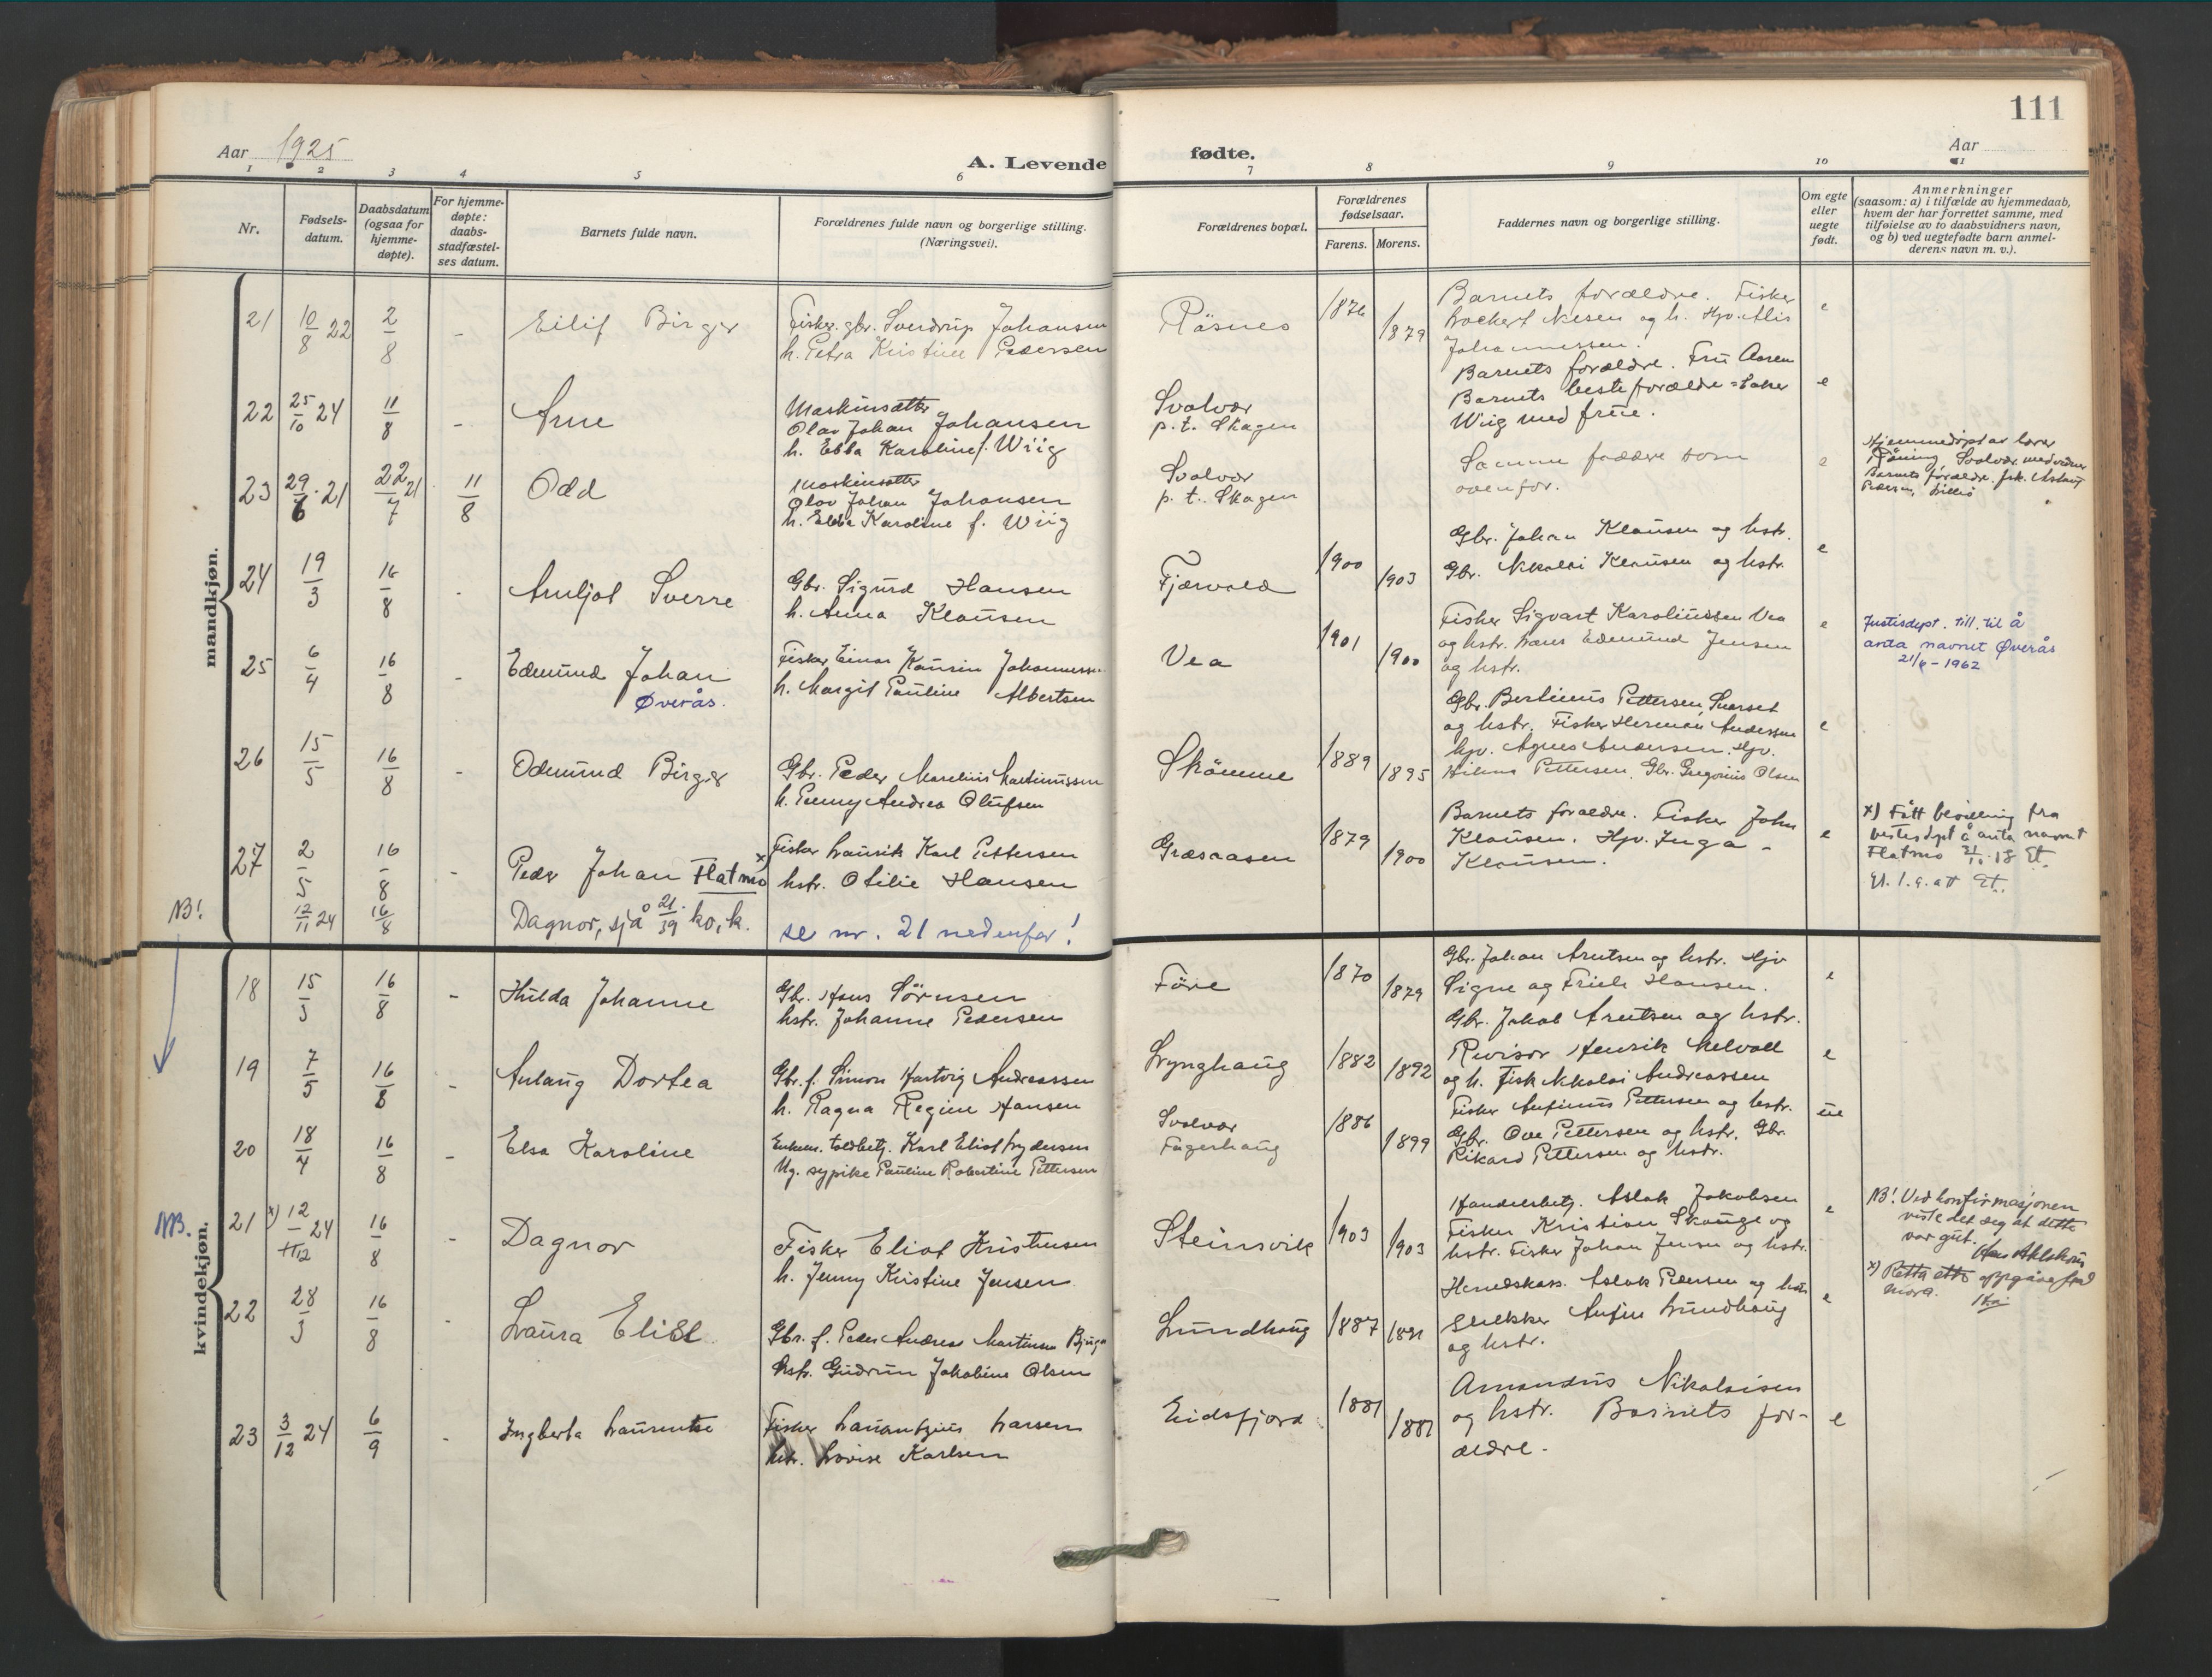 111
Aar 1925
A. Levende fødte.
Aar
1 2 3 4 5 6 7 8 9 10 11
Nr.
Fødsels-
datum.
Daabsdatum
(ogsaa for
hjemme-
døpte).
For hjemme-
døpte:
daabs-
stadfæstel-
ses datum.
Barnets fulde navn.
Forældrenes fulde navn og borgerlige stilling.
(Næringsvei).
Forældrenes bopæl.
Forældrenes
fødselsaar.
Farens. Morens.
Faddernes navn og borgerlige stilling.
Om egte
eller
uegte
født.
Anmerkninger
(saasom: a) i tilfælde av hjemmedaab,
hvem der har forrettet samme, med
tilføielse av to daabsvidners navn,
og b) ved uegtefødte barn anmel-
derens navn m. v.).
mandkjøn.
21 10/8 22 2/8 - Eilif Birger
Fisker, gbr. Sverdrup Johansen
h. Petra Kristine Pedersen
Råsnes 1876 1879
Barnets forældre. Fisker
og h. Hjv. Alis
Johannessen.
e
22 25/10 24 11/8 - Arne
Maskinsætter
Olav Johan Johansen
h. Ebba Karoline f. Wiig
Svolvær
p. t. Skagen
Barnets forældre. Fru Aasen
Barnets besteforældre
Wiig med frue.
e
23 29/6 21 22/7 21 11/8 Odd
Maskinsætter
Olav Johan Johansen
h. Ebba Karoline f. Wiig
Svolvær
p. t. Skagen
Samme faddere som
ovenfor.
e
Hjemmedøpt av lærer
Svolvær med vidner
Barnets forældre. frk. Aslaug
Pedersen,
24 19/3 16/8 - Arnljot Sverre
Gbr. Sigurd Hansen
h. Anna Klausen
Fjærvold 1900 1903
Gbr. Johan Klausen og hstr.
Gbr. Nikolai Klausen og hstr.
e
25 6/4 16/8 - Edmund Johan
Øverås.
Fisker Einar Kausin Johannessen
h. Margit Pauline Albertsen
Vea 1901 1900
Fisker Sigvart Karolinssen Vea
og hstr. Hans Edmund Jensen
og hstr.
e
Justisdept. till. til å
anta navnet Øverås
21/6 - 1962
26 15/5 16/8 - Odmund Birger
Gbr. Peder Marelius Martinussen
h. Penny Andrea Olufsen
Skåmme 1889 1895
Gbr. Bertinus Pettersen, Svarset
og hstr. Fisker Herman Andersen
hjv. Agnes Andersen. Hjv.
Hilma Pettersen. Gbr. Gregorius Olsen
e
27 2/5 16/8 - Peder Johan Flatmo x
Fisker Laurik Karl Pettersen
hstr. Otilie Hansen
Græsaasen 1879 1900
Barnets forældre. Fisker John
Klausen. Hjv. Inga
Klausen.
e
x) Fått bevilling fra
å anta navnet
Flatmo
NB! 12/11 24 16/8 Dagnor, sjå 21/39 ko, k.
se nr. 21 nedenfor!
kvindekjøn.
18 15/5 16/8 - Hilda Johanne
Gbr. Hans Sörensen
hstr. Johanne Pedersen
Före 1870 1879
Gbr. Johan Arntsen og hstr. Hjv
Signe og Hansen.
Gbr. Jakob Arntsen og hstr.
e
19 7/5 16/8 - Anlaug Dortea
Gbr. f. Simon Hartvig Andreassen
h. Ragna Regine Hansen
Lynghaug 1882 1892
Revisor Henrik Melvoll
og h. Fisk Nikolai Andreassen
e
20 18/4 16/8 - Elsa Karoline
Enkem. toldbetj. Karl Eliot Lydersen
Ug. sypike Pauline Robertine Pettersen
Svolvær
Fagerhaug 1886 1899
Fisker Anfinus Pettersen og hstr.
Gbr. Ove Pettersen og hstr. Gbr.
Rikard Pettersen og hstr.
ue
NB. 21 x) 12/11 12 24 16/8 - Dagnor
Fisker Eliot Kristensen
h. Jenny Kristine Jensen
Steinsvik 1903 1903
Handelsbetj. Aslak Jakobsen
Fisker Kristian Skauge og
hstr. Fisker Johan Jensen og hstr.
e
NB! Ved konfirmasjonen
viste det seg at dette
var gut.
x) Retta etter oppgåve frå
mora.
22 28/3 16/8 - Laura Elise
Gbr. f. Peder Andreas Martinsen
hstr. Gudrun Jakobine Olsen
Lundhaug 1887 1891
Herredskass. Aslak Pedersen og hstr
Anfin Lundhaug
og hstr.
e
23 3/12 24 6/9 - Ingberta Laurentse
Fisker Laurentzius Larsen
hstr. Lovise Karlsen
Eidsfjord 1881 1881
Amandus Nikolaisen
og hstr. Barnets for-
ældre.
e